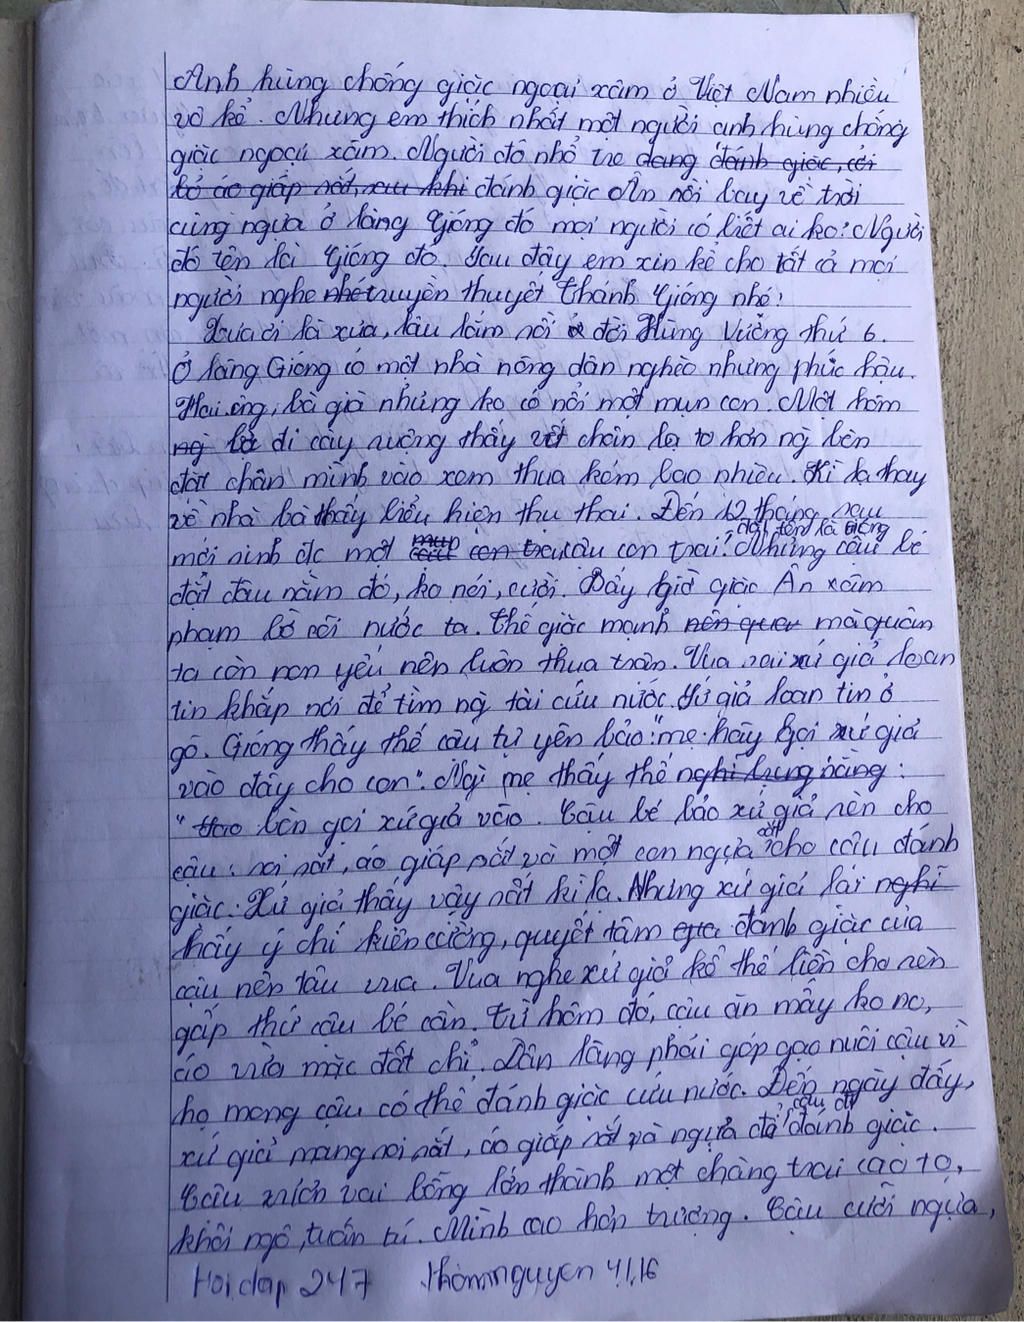 Anh hùng chống giặc ngoại xâm ở Việt Nam nhiều
vô kể. Nhưng em thích nhất một người anh hùng chống
giặc ngoại xâm. Người đó nhổ tre đang đánh giặc, cởi
bỏ áo giáp sắt, sau khi đánh giặc Ân rồi bay về trời
cùng ngựa ở làng Gióng đó mọi người có biết ai ko? Người
đó tên là Gióng đó. Sau đây em xin kể cho tất cả mọi
người nghe nhé truyền thuyết Thánh Gióng nhé!
Xưa ơi là xưa, lâu lắm rồi ở đời Hùng Vương thứ 6.
Ở làng Gióng có một nhà nông dân nghèo nhưng phúc hậu.
Hai ông, bà già nhưng ko có nổi một mụn con. Một hôm
ng bà đi cày ruộng thấy vết chân lạ to hơn ng bèn
đặt chân mình vào xem thua kém bao nhiêu. Kì lạ thay
về nhà bà thấy biểu hiện thụ thai. Đến 12 tháng sau
mới sinh đc một mụn con trai cậu con trai đặt tên là Gióng. Nhưng cậu bé
đặt đâu nằm đó, ko nói, cười. Bấy giờ giặc Ân xâm
phạm bờ cõi nước ta. Thế giặc mạnh nên quen mà quân
ta còn non yếu nên luôn thua trận. Vua sai xứ giả loan
tin khắp nơi để tìm ng tài cứu nước. Sứ giả loan tin ở
gô. Gióng thấy thế cậu tự yên bảo: "mẹ hãy gọi xứ giả
vào đây cho con". Ng mẹ thấy thế nghi hung năng:
" thao bèn gọi xứ giả vào. Cậu bé bảo xứ giả rèn cho
cậu: roi sắt, áo giáp sắt và một con ngựa sắt cho cậu đánh
giặc. Xứ giả thấy vậy rất kì lạ. Nhưng xứ giả lại nghĩ
thấy ý chí kiên cường, quyết tâm qua đánh giặc của
cậu nên tâu vua. Vua nghe xứ giả kể thế liền cho rèn
gấp thứ cậu bé cần. Từ hôm đó, cậu ăn mấy ko no,
áo vừa mặc đứt chỉ. Dân làng phải góp gạo nuôi cậu vì
họ mong cậu có thể đánh giặc cứu nước. Đến ngày đấy,
xứ giả mang roi sắt, áo giáp sắt và ngựa để cậu đi đánh giặc.
Cậu vích vai bỗng lớn thành một chàng trai cao to,
khôi ngô, tuấn tú. Mình cao hơn trượng. Cậu cưỡi ngựa,
Hoidap 247 thomnguyen 41,16